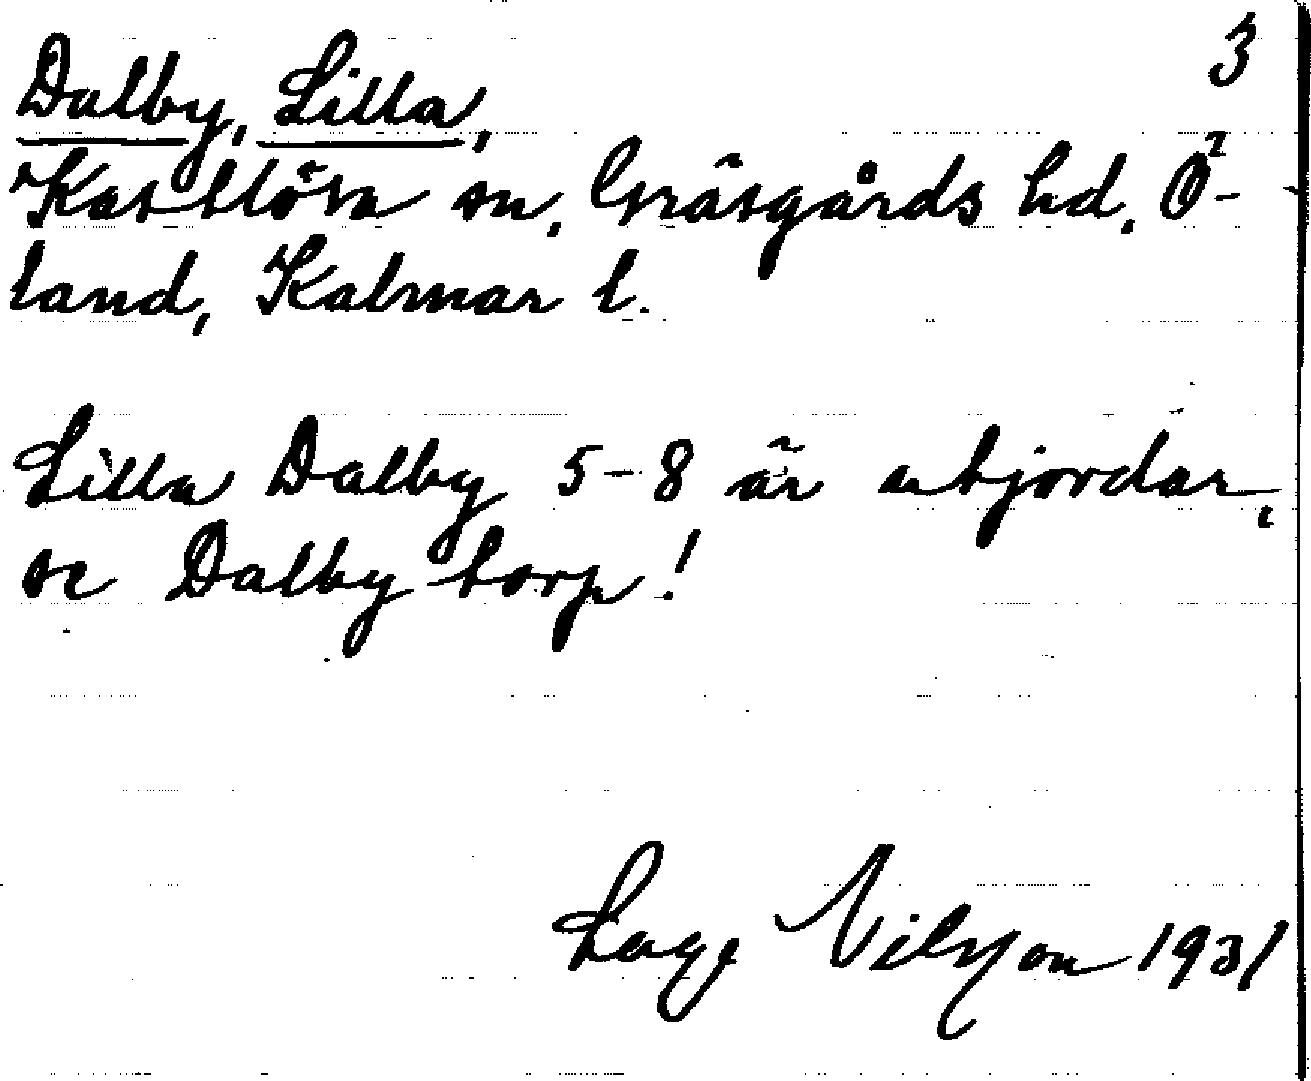 3
Dalby, Lilla,
Kastlösa sn, Gräsgårds hd, Ö-
land, Kalmar l.
Lilla Dalby 5-8 är utjordar,
se Dalby torp!
Lage Nilsson 1931